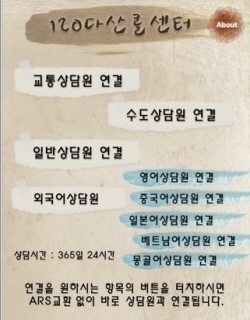 120다산콜센터
About
교통상담원 연결
수도상담원 연결
일반상담원 연결
외국어상담원
영어상담원 연결
중국어상담원 연결
일본어상담원 연결
베트남어상담원 연결
몽골어상담원 연결
상담시간 : 365일 24시간
연결을 원하시는 항목의 버튼을 터치하시면
ARS교환 없이 바로 상담원과 연결됩니다.